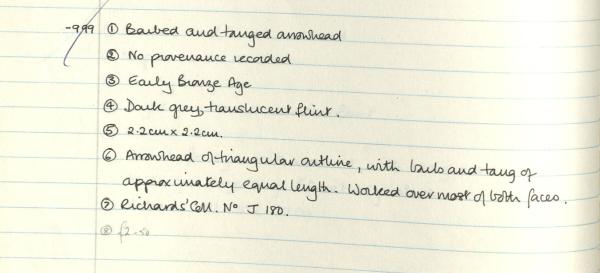 -9,99 ① Barbed and tanged arrowhead
② No provenance recorded
③ Early Bronze Age
④ Dark grey, translucent flint.
⑤ 2.2cm x 2.2cm.
⑥ Arrowhead of triangular outline, with barbs and tang of
approximately equal length. Worked over most of both faces.
⑦ Richards' Coll. No J 180.
⑧ £2.50